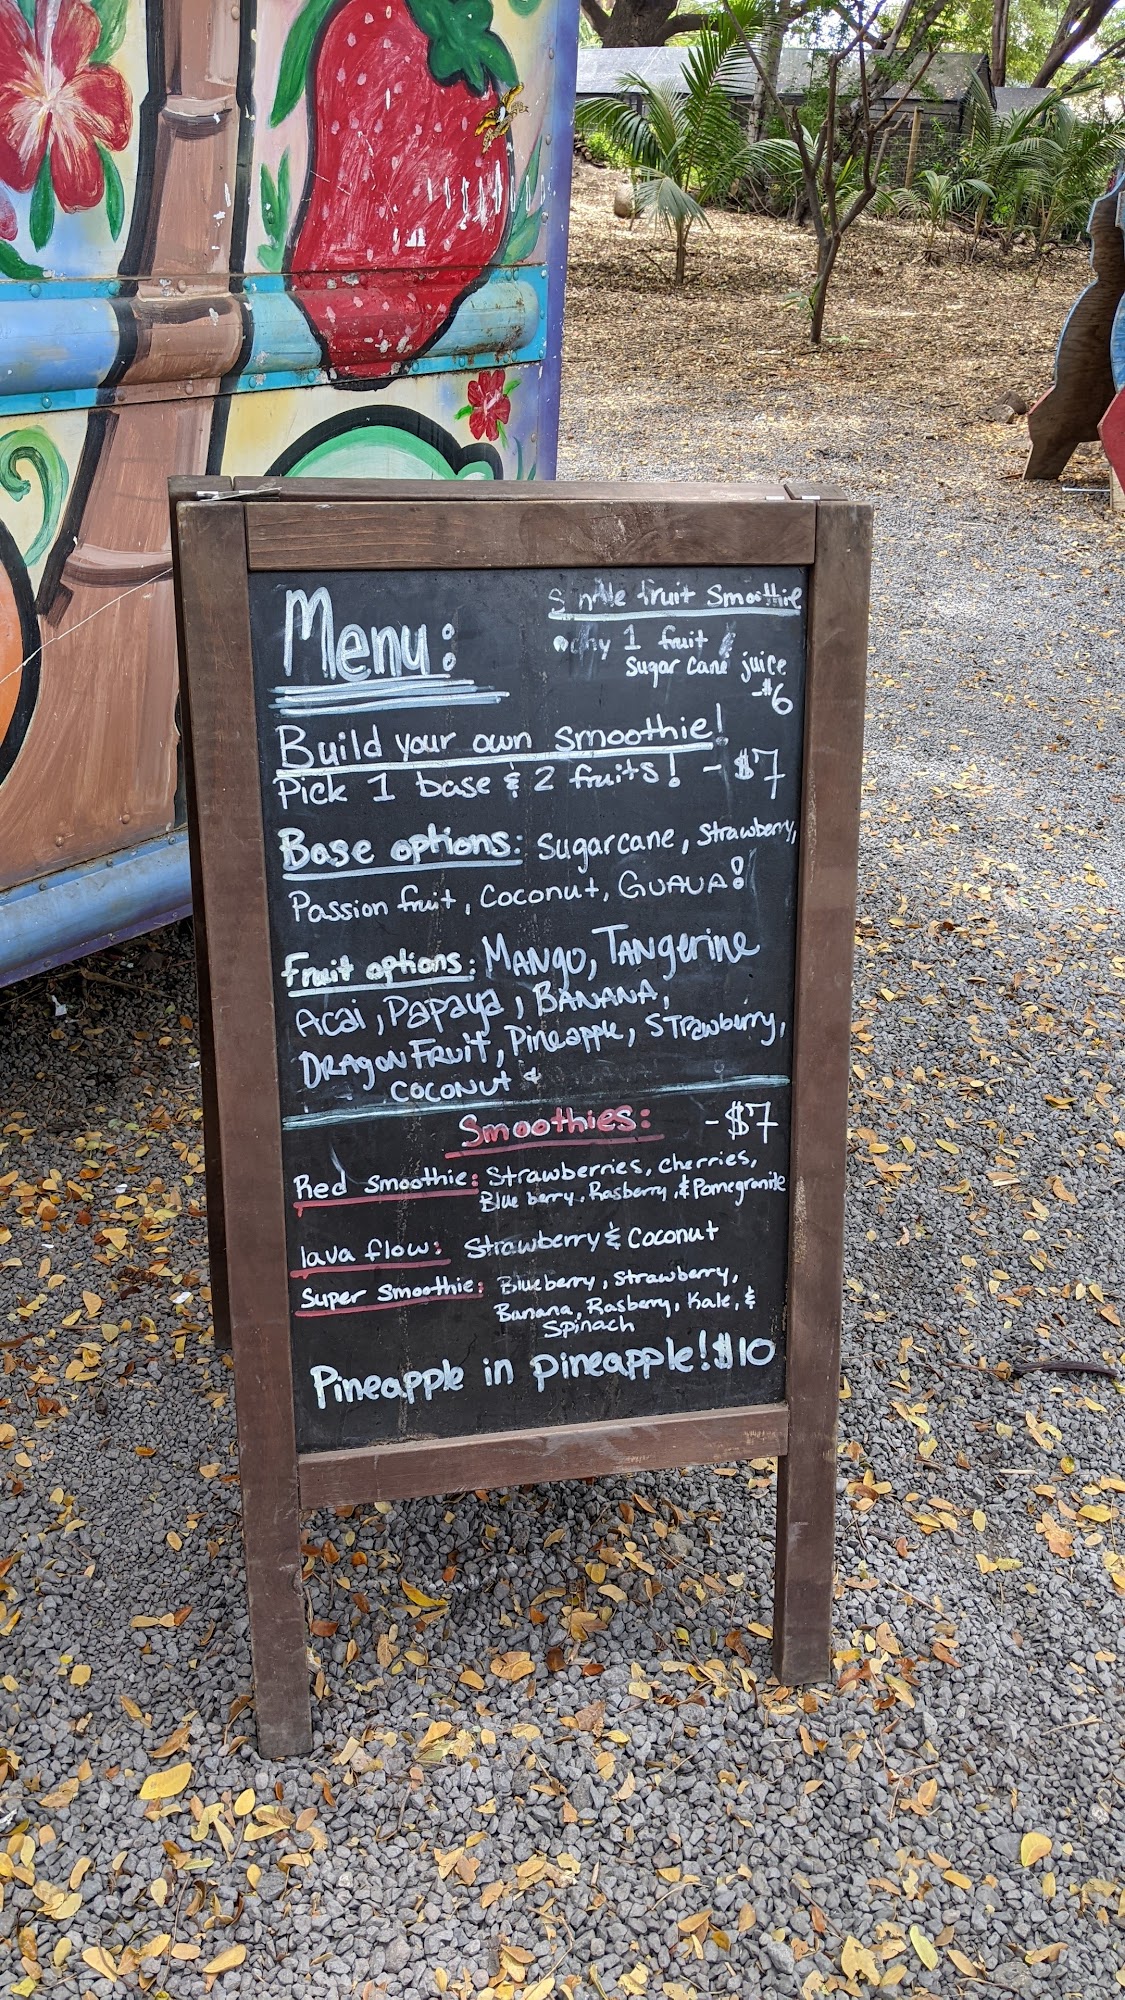 Menu:
fruit Smoothie
1 fruit
Sugar cane juice
-$6
Build your own smoothie!
Pick 1 base & 2 fruits! - $7
Base options: Sugarcane, strawberry,
Passion fruit, Coconut, GUAVA!
Fruit options: MANGO, TANgerine
Acai, Papaya, BANANA,
DRAgON FRUIT, Pineapple, STrawberry,
COCONUT &
Smoothies: - $7
Red Smoothie: Strawberries, cherries,
Blue berry, Rasberry, & Pomegranite
lava flow: Strawberry & Coconut
Super Smoothie: Blueberry, strawberry,
Banana, Rasberry, Kale, &
Spinach
Pineapple in pineapple! $10